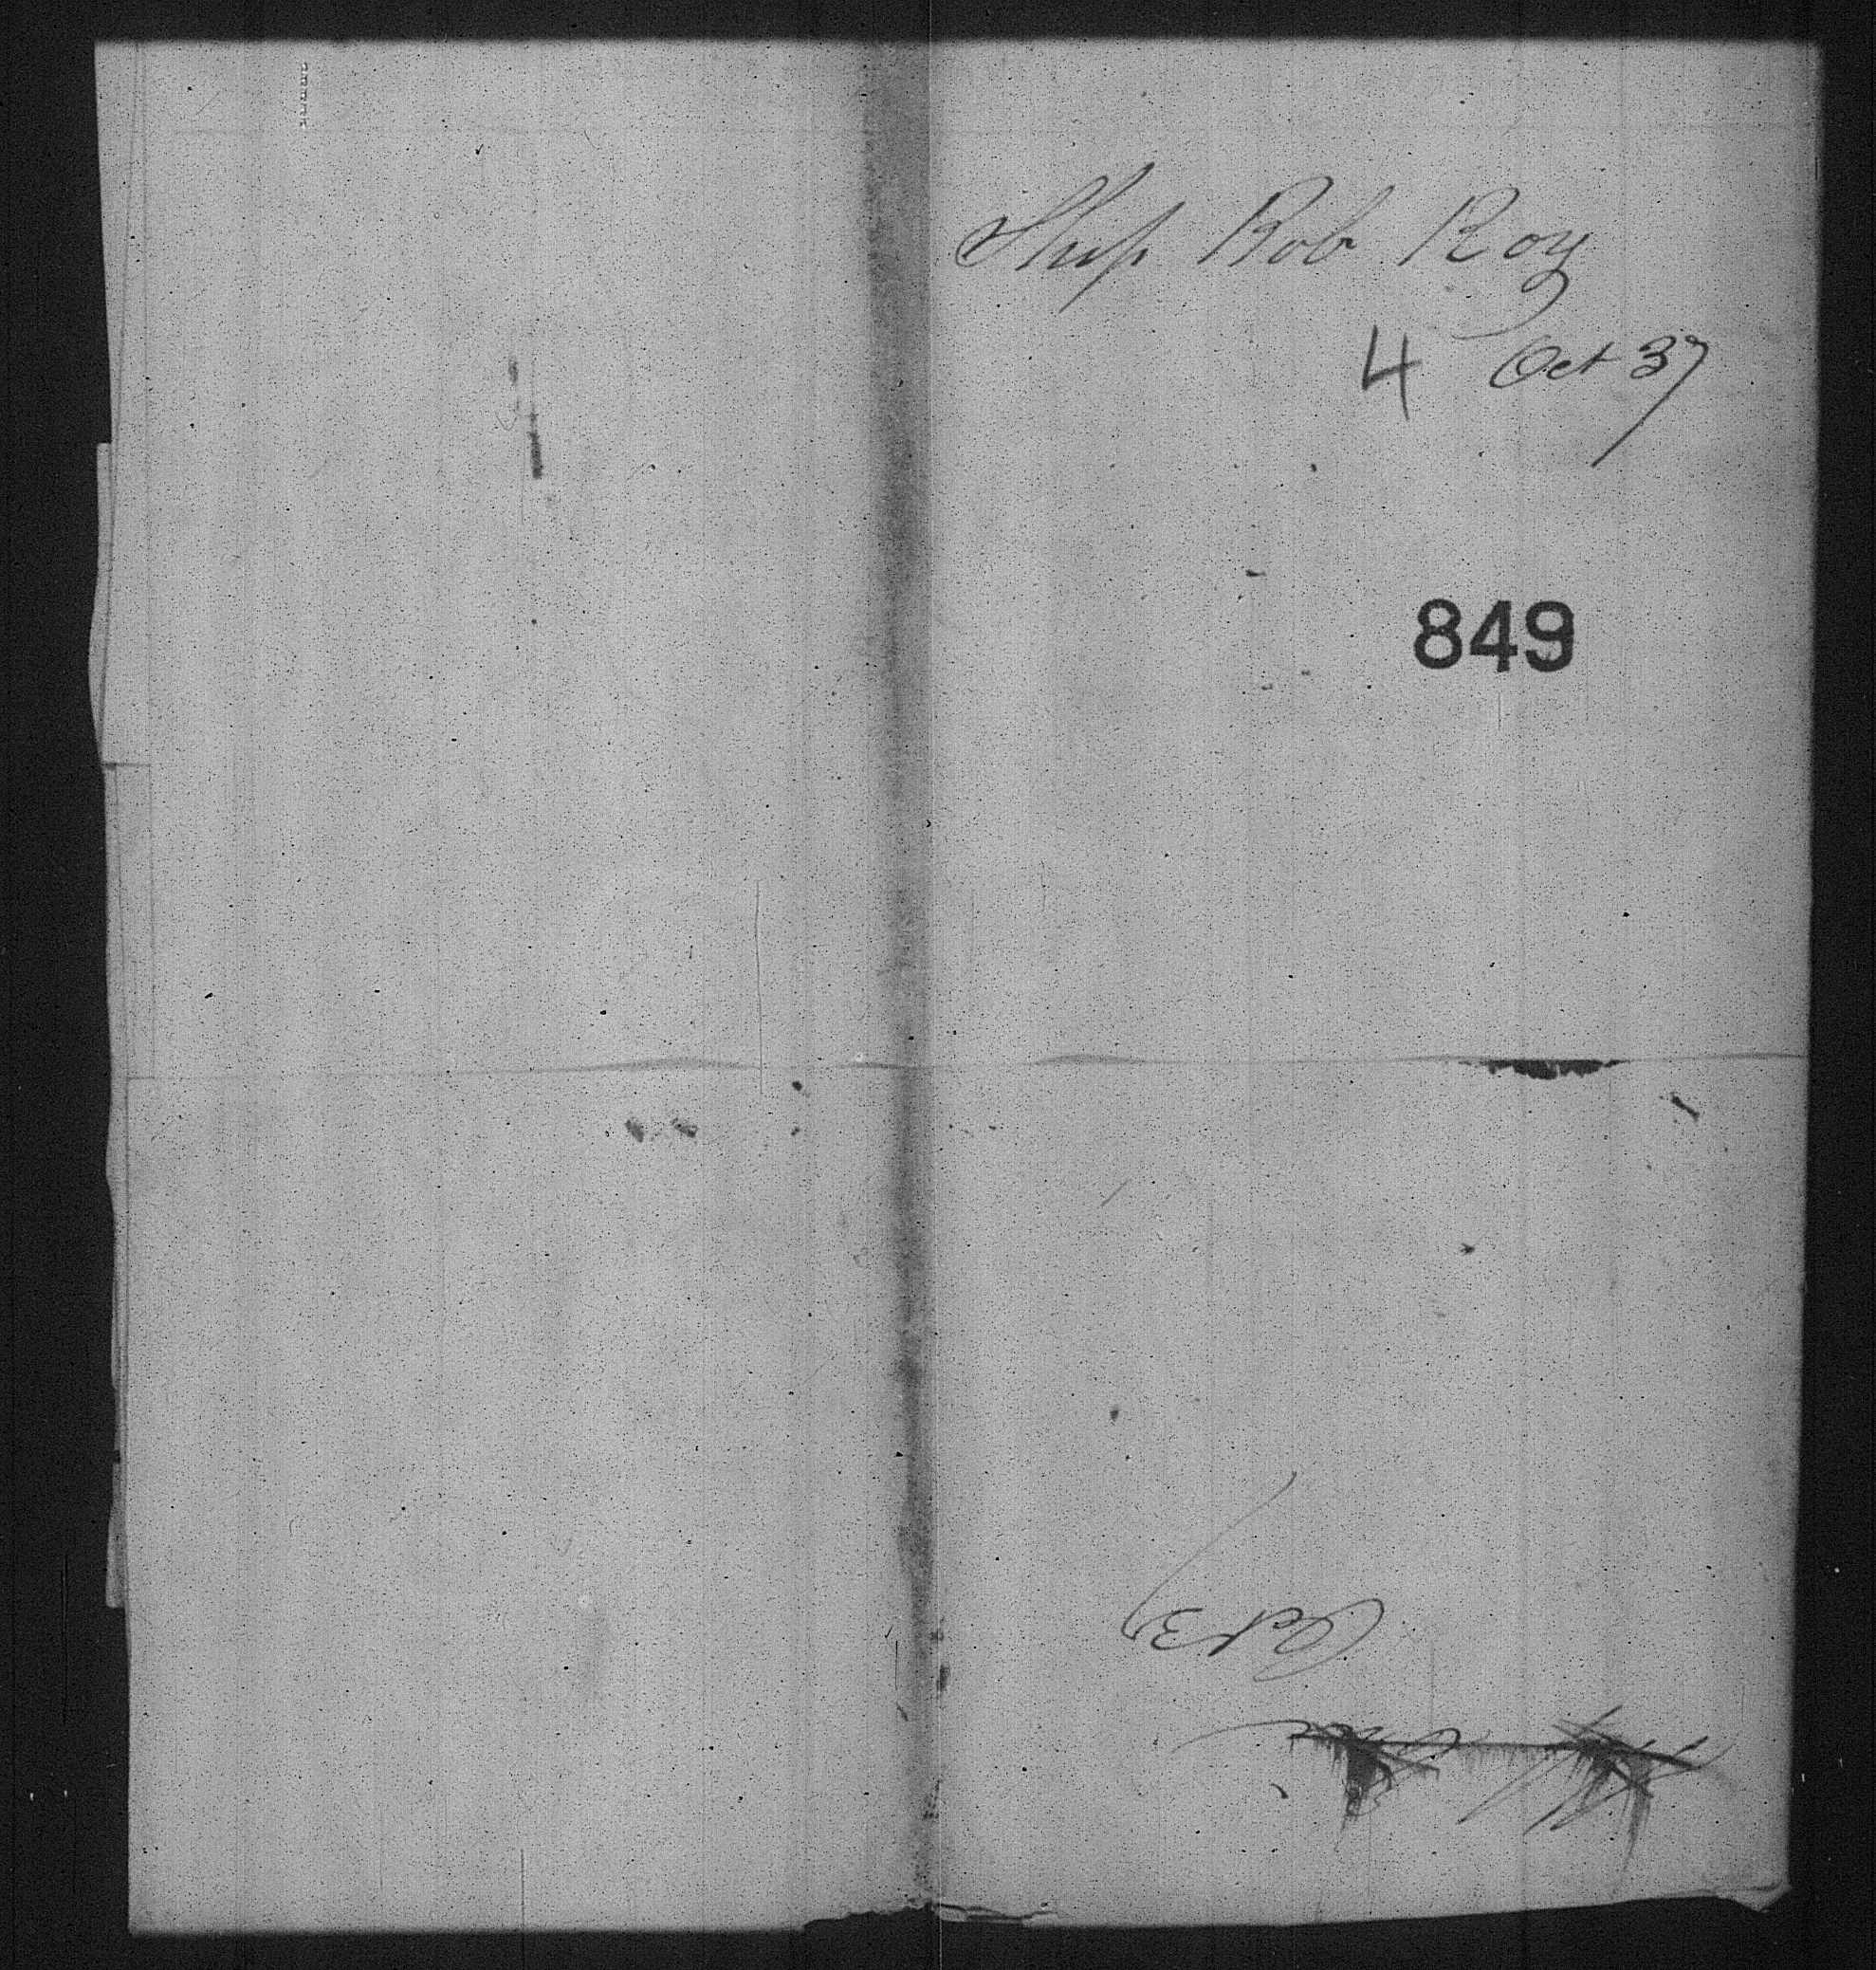 Ship Rob Roy
4 Oct 37
849
Oct 3